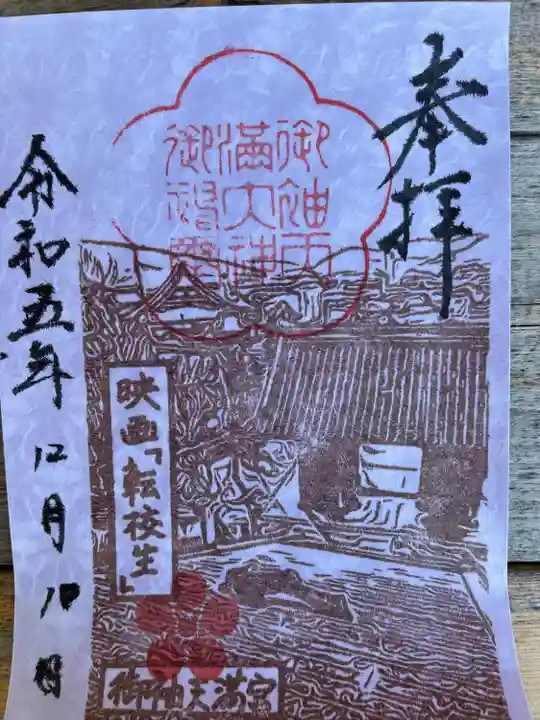 奉拝
御袖天
満大神
御神璽
映画「転校生」
御袖天満宮
令和五年12月10日